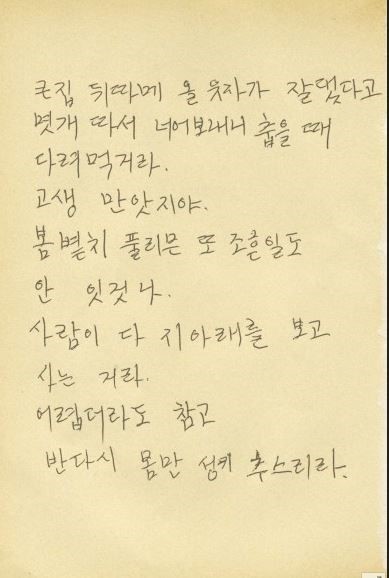 큰집 뒤따메 올 유자가 잘댔다고
몇개 따서 너어보내니 춥을 때
다려먹거라.
고생 만앗지야.
봄볕치 풀리믄 또 조흔일도
안 잇것나.
사람이 다 지아래를 보고
사는 거라.
어렵더라도 참고
반다시 몸만 성키 추스리라.